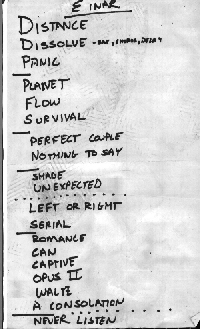 EINAR
DISTANCE
DISSOLVE
PANIC
PLANET
FLOW
SURVIVAL
PERFECT COUPLE
NOTHING TO SAY
SHADE
UNEXPECTED
LEFT OR RIGHT
SERIAL
ROMANCE
CAN
CAPTIVE
OPUS II
WALTZ
A CONSOLATION
NEVER LISTEN